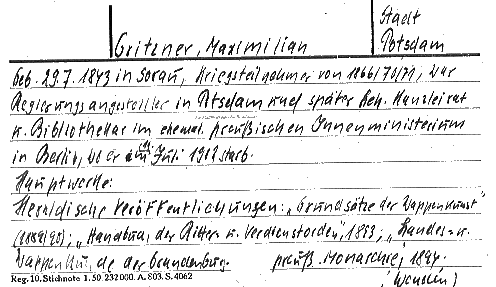 Stadt
Gritzner, Maximilian Potsdam
Geb. 29.7.1843 in Sorau, Kriegsteilnehmer von 1866/70/71, war
Regierungsangestellter in Potsdam und später Geh. Kanzleirat
u. Bibliothekar im ehemal. preußischen Innenministerium
in Berlin, wo er im Juli 1902 starb.
Hauptwerke:
Heraldische Veröffentlichungen: „Grundsätze der Wappenkunst"
(1889/90); „Handbuch der Ritter- u. Verdienstorden", 1893; „Landes- u.
Wappenkunde der Brandenburg. preuß. Monarchie, 1894.
Reg. 10. Stichnote 1. 50 232000. A. 803. S. 4062